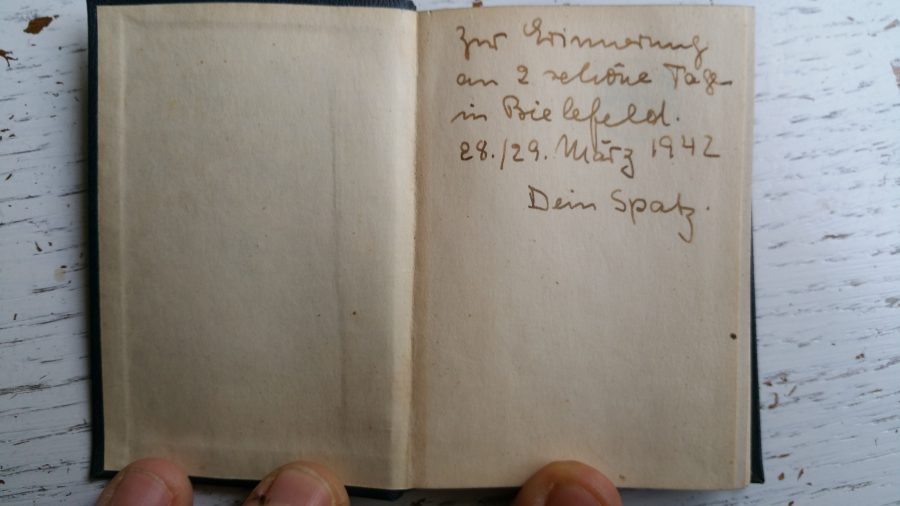 Zur Erinnerung
an 2 schöne Tage
in Bielefeld.
28./29. März 1942
Dein Spatz.